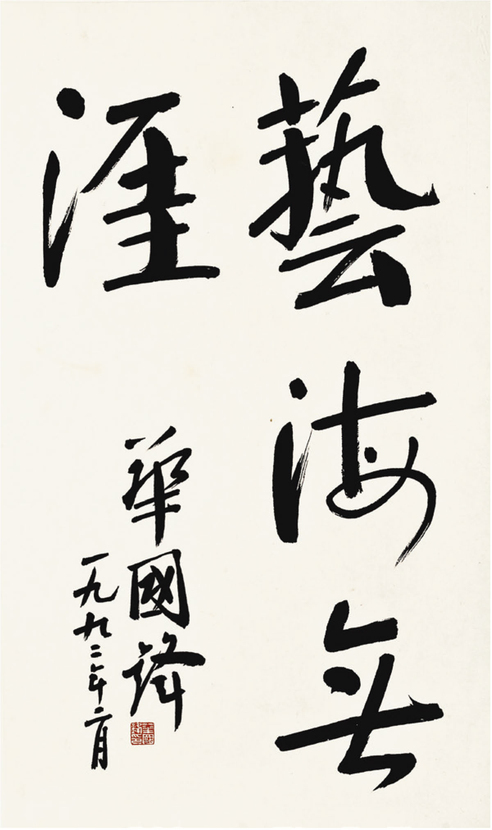 藝海無
涯
華國鋒
一九九二年二月